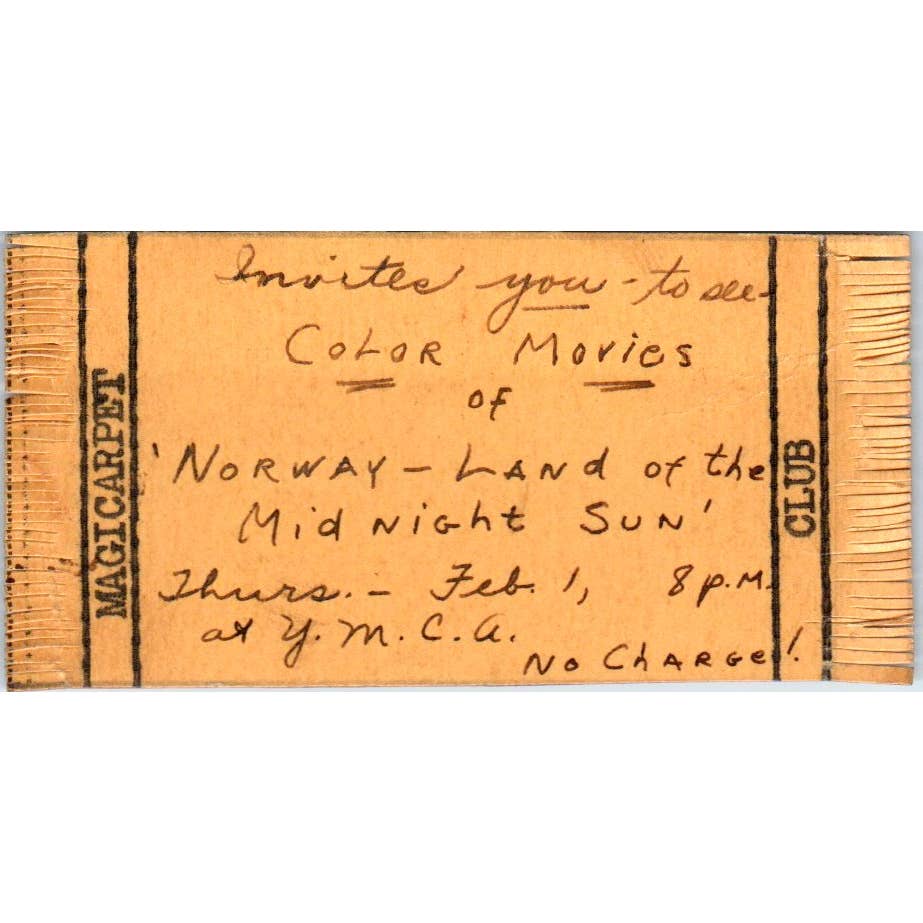 MAGICARPET
Invites you - to see -
COLOR MOVIES
of
'NORWAY - LAND of the
MidNight SUN'
Thurs. - Feb. 1, 8 p.M.
at Y.M.C.A.
No CHARGE!
CLUB